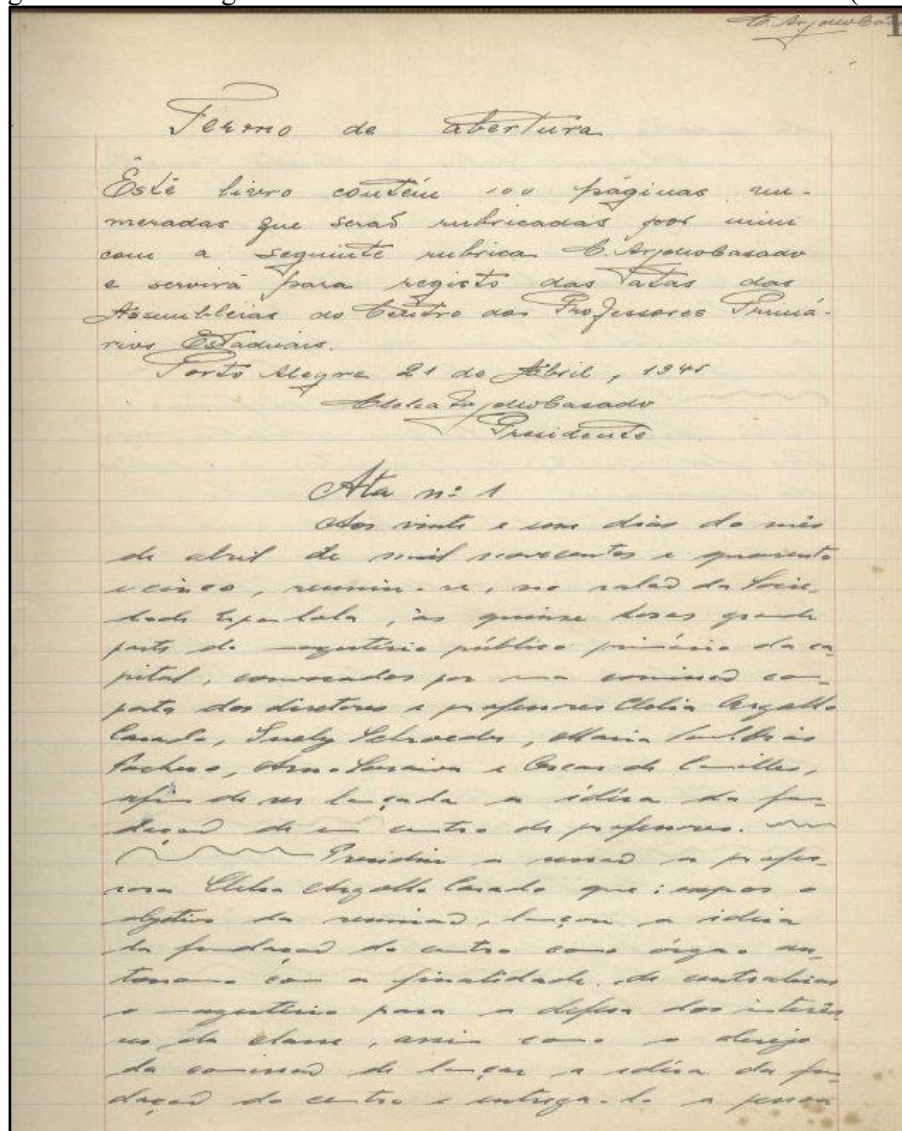 1
Termo de abertura
Êste livro contém 100 páginas nu-
meradas que serão rubricadas por mim
com a seguinte rubrica C. ArgolloCasado
e servirá para registo das atas das
Assembléias do Centro dos Professores Primá-
rios Estaduais.
Porto Alegre 21 de Abril, 1945
Clelia ArgolloCasado
Presidente
Ata nº 1
Aos vinte e um dias do mês
de abril de mil novecentos e quarenta
e cinco, reuniu-se, no salão da Socie-
dade Espanhola, às quinze horas grande
parte do magistério público primário da ca-
pital, convocados por uma comissão com-
posta dos diretores e professores Clelia Argollo
Casado, Suely Schroeder, Maria
Pacheco, e Oscar de
afim de ser lançada a idéia da fun-
dação de um centro de professores.
Presidiu a sessão a profes-
sora Clelia Argollo Casado que: expos o
objetivo da reunião, lançou a idéia
da fundação do centro como órgão au-
tonomo com a finalidade de centralizar
o magistério para a defesa dos interês-
ses da classe, assim como o desejo
da comissão de lançar a idéia da fun-
dação do centro e entrega-lo a pessoa